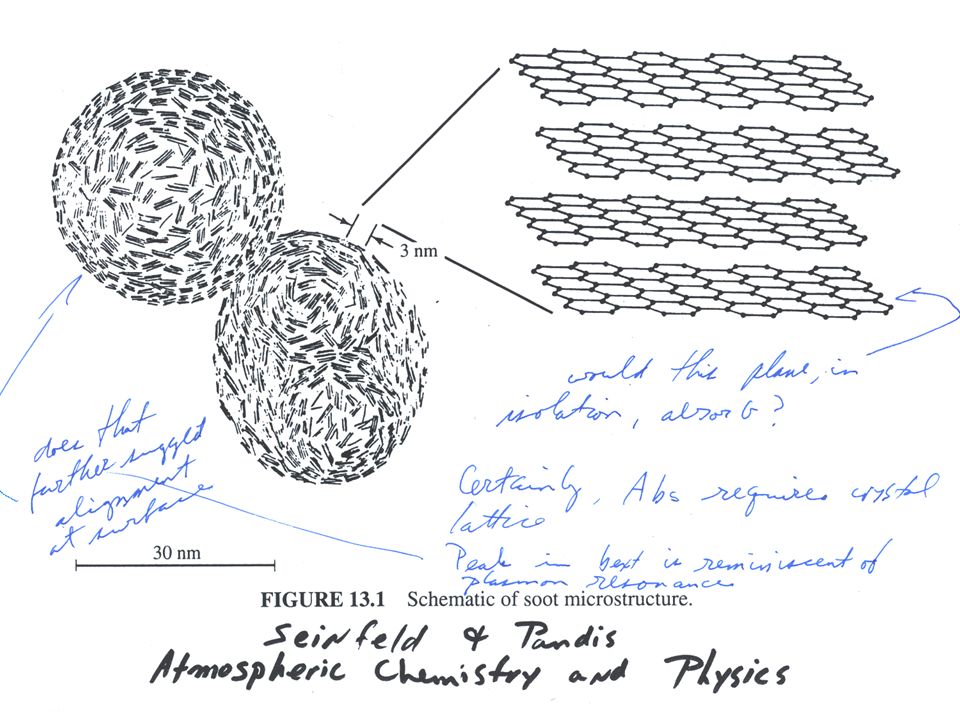 3 nm
would this plane, in
isolation, absorb?
does that
further suggest
alignment
at surface
Certainly, Abs requires crystal
lattice
Peak in is reminiscent of
plasmon resonance
30 nm
FIGURE 13.1 Schematic of soot microstructure.
Seinfeld & Pandis
Atmospheric Chemistry and Physics